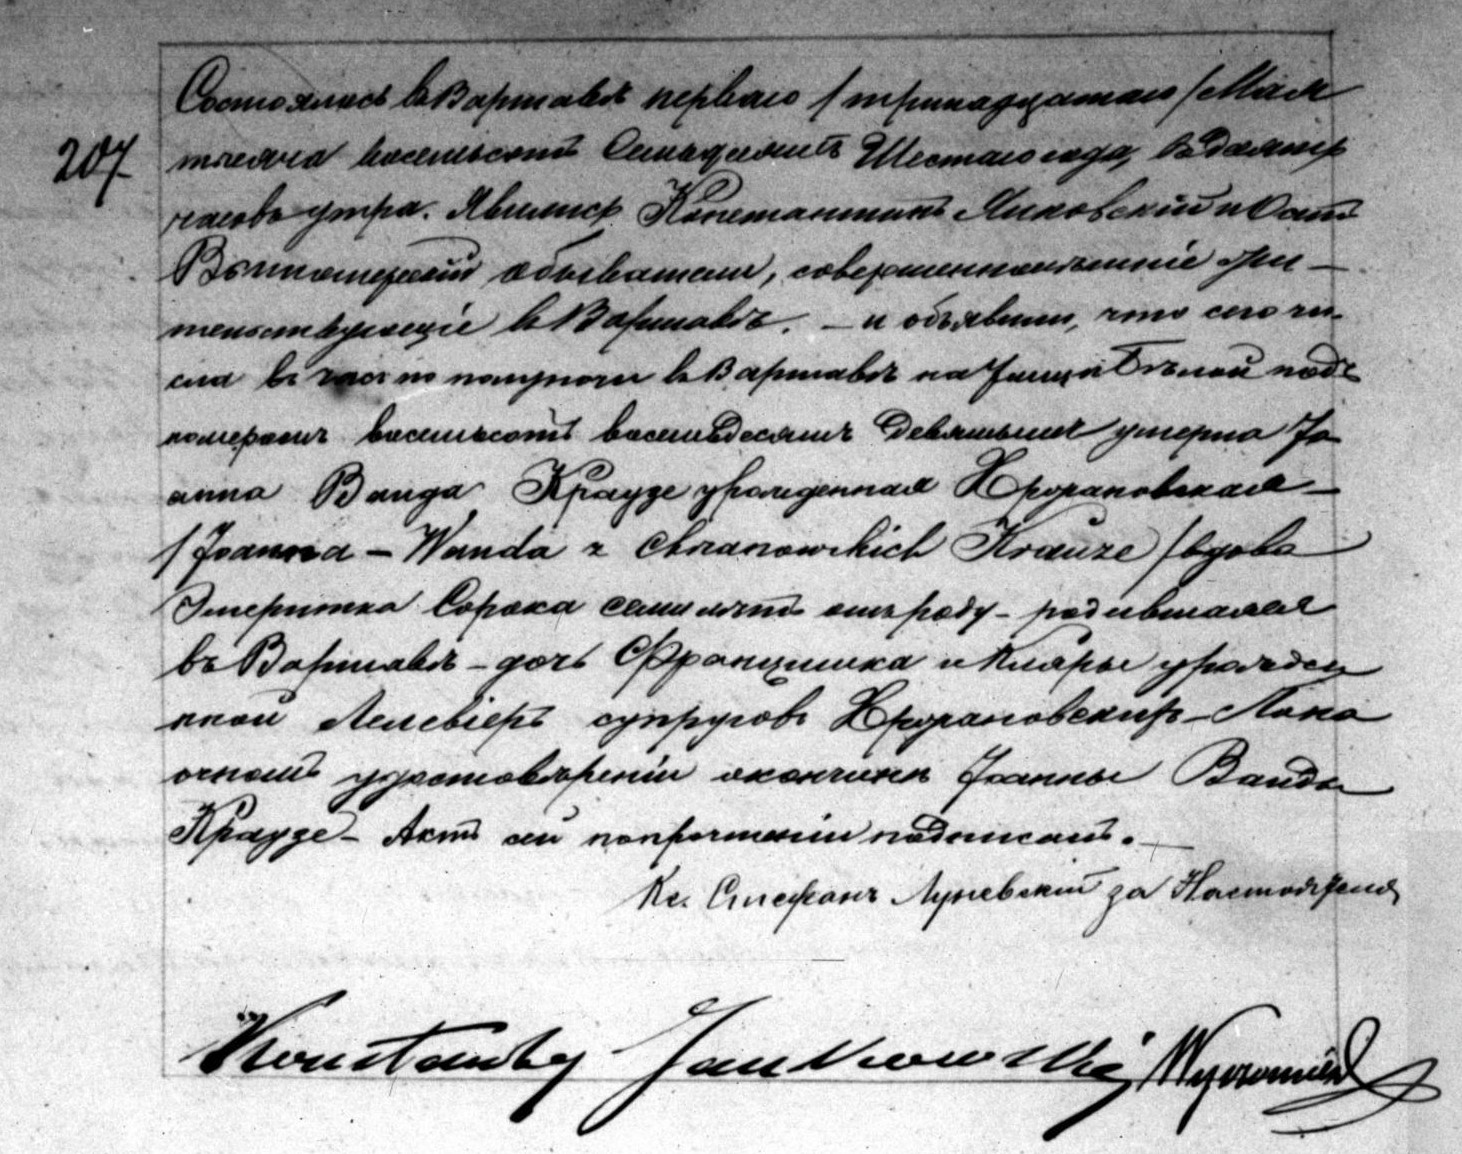 207
Состоялось въ Варшавѣ перваго /тринадцатаго/ Мая
тысяча восемьсотъ Семьдесятъ Шестаго года, въ десять
часовъ утра. Явились Константинъ Янковскій и
обыватели, совершеннолѣтніе жи-
тельствующіе въ Варшавѣ. – и объявили, что сего чи-
сла въ часъ по полуночи въ Варшавѣ на Улицѣ Бѣлой подъ
номеромъ восемьсотъ восемьдесятъ Девятымъ умерла Іо-
анна Ванда Краузе урожденная Хржановская –
/Joanna – Wanda z Chrzanowskich Krauze/ вдова
Эмеритка Сорока семи лѣтъ отъ роду – родившаяся
въ Варшавѣ – дочь Францишка и Клары урожден
ной супруговъ Хржановскихъ – По на
очномъ удостовѣреніи о кончинѣ Іоанны Ванды
Краузе – Актъ сей по прочтеніи подписанъ. –
Кс. Стефанъ за Настоятеля
Konstanty Jankowski